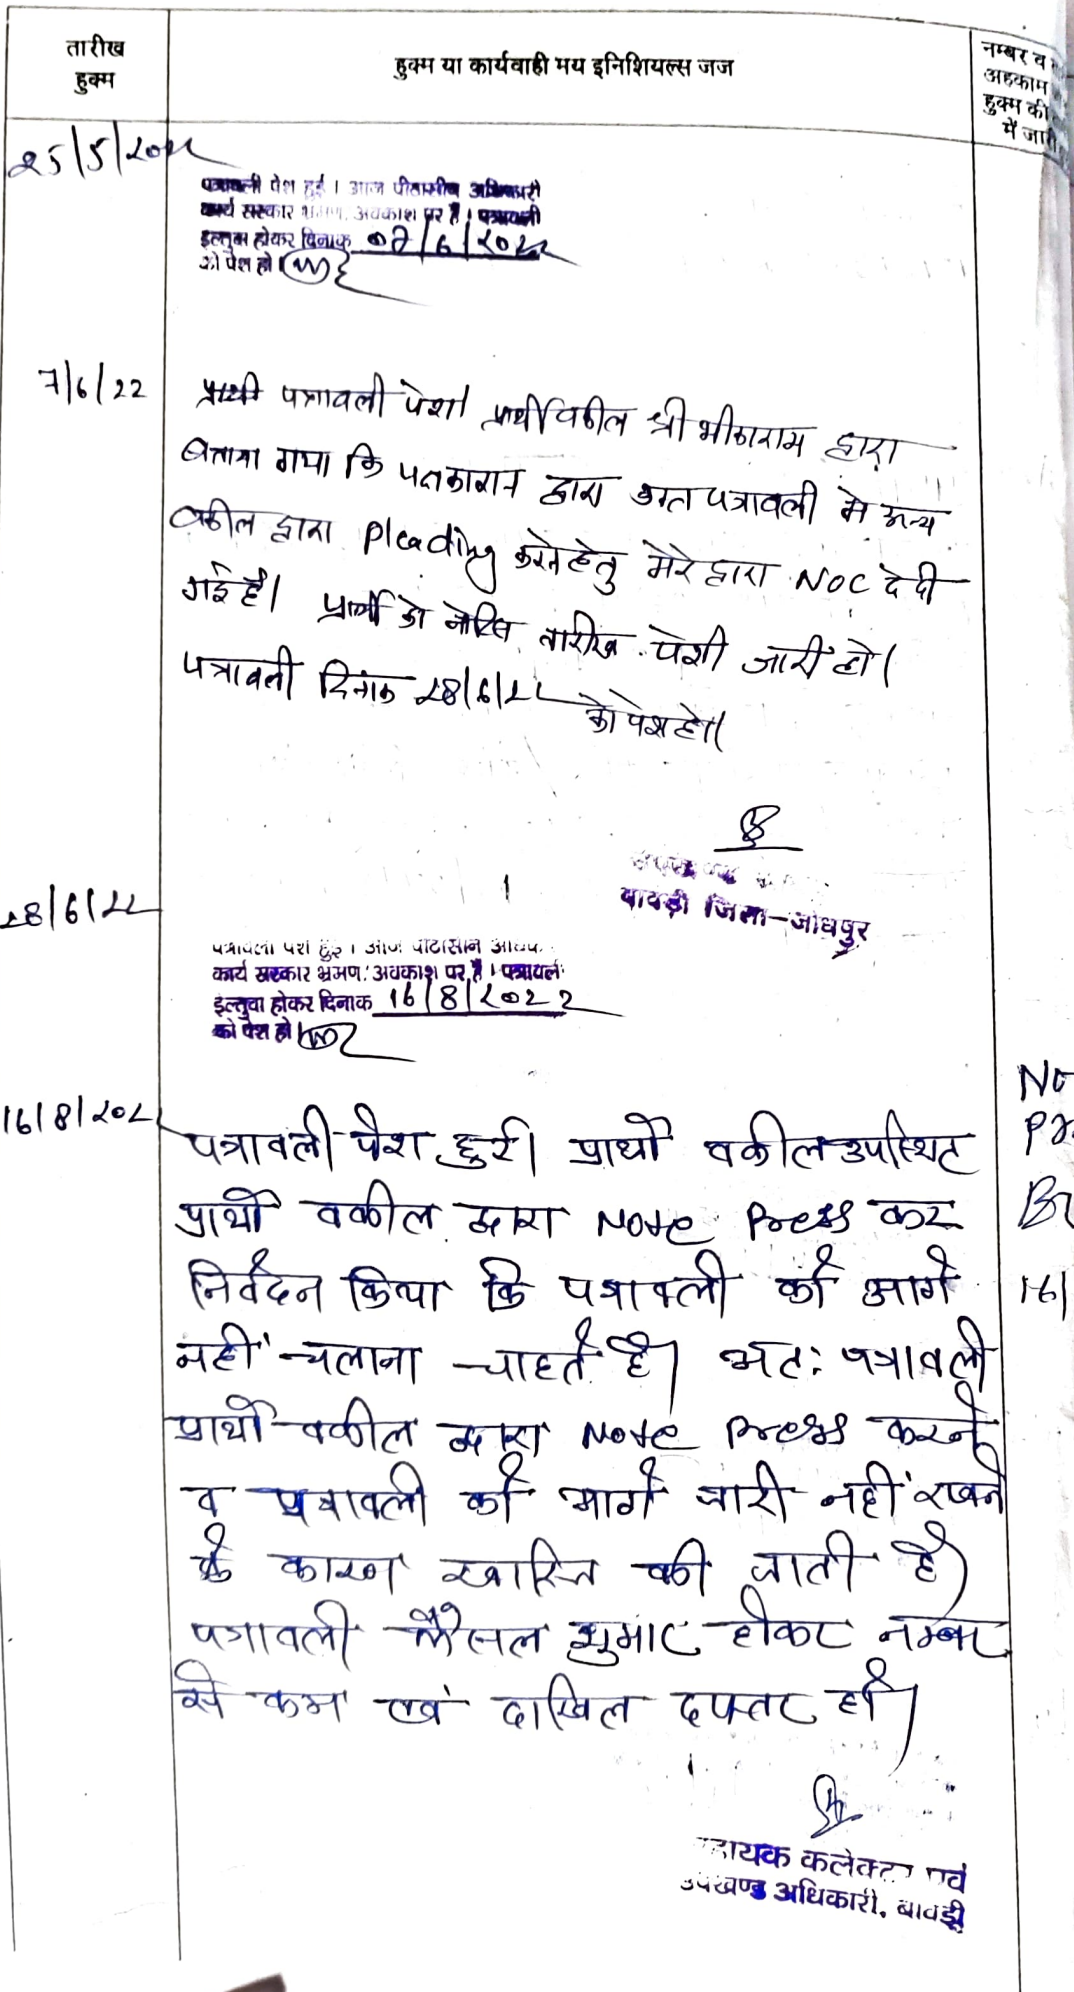 तारीख
हुक्म
हुक्म या कार्यवाही मय इनिशियल्स जज
नम्बर व
अहकाम
हुक्म की
में जारी
25/5/2022
पत्रावली पेश हुई। आज पीठासीन अधिकारी
कार्य सरकार भ्रमण, अवकाश पर है। पत्रावली
इल्तुवा होकर दिनाक 07/6/2022
को पेश हो
7/6/22
पत्रावली पेश। प्रार्थी वकील श्री भीकाराम द्वारा
बताया गया कि पक्षकारान द्वारा उक्त पत्रावली में अन्य
वकील द्वारा Pleading करने हेतु मेरे द्वारा NOC दे दी
गई है। प्रार्थी को नोटिस तारीख पेशी जारी हो।
पत्रावली दिनांक 28/6/22 को पेश हो।
बावड़ी जिला-जोधपुर
28/6/22
पत्रावली पेश हुई। आज पीठासीन
कार्य सरकार भ्रमण, अवकाश पर है। पत्रावली
इल्तुवा होकर दिनाक 16/8/2022
को पेश हो
16/8/202
पत्रावली पेश हुई। प्रार्थी वकील उपस्थित
प्रार्थी वकील द्वारा Note Press कर
निवेदन किया कि पत्रावली को आगे
नहीं चलाना चाहते है। अतः पत्रावली
प्रार्थी वकील द्वारा Note Press करने
व पत्रावली को आगे जारी नहीं रखने
के कारण खारिज की जाती है।
पत्रावली फैसल शुमार होकर नम्बर
से कम एवं दाखिल दफ्तर हो।
No
Pr
16/
सहायक कलेक्टर एवं
उपखण्ड अधिकारी, बावड़ी